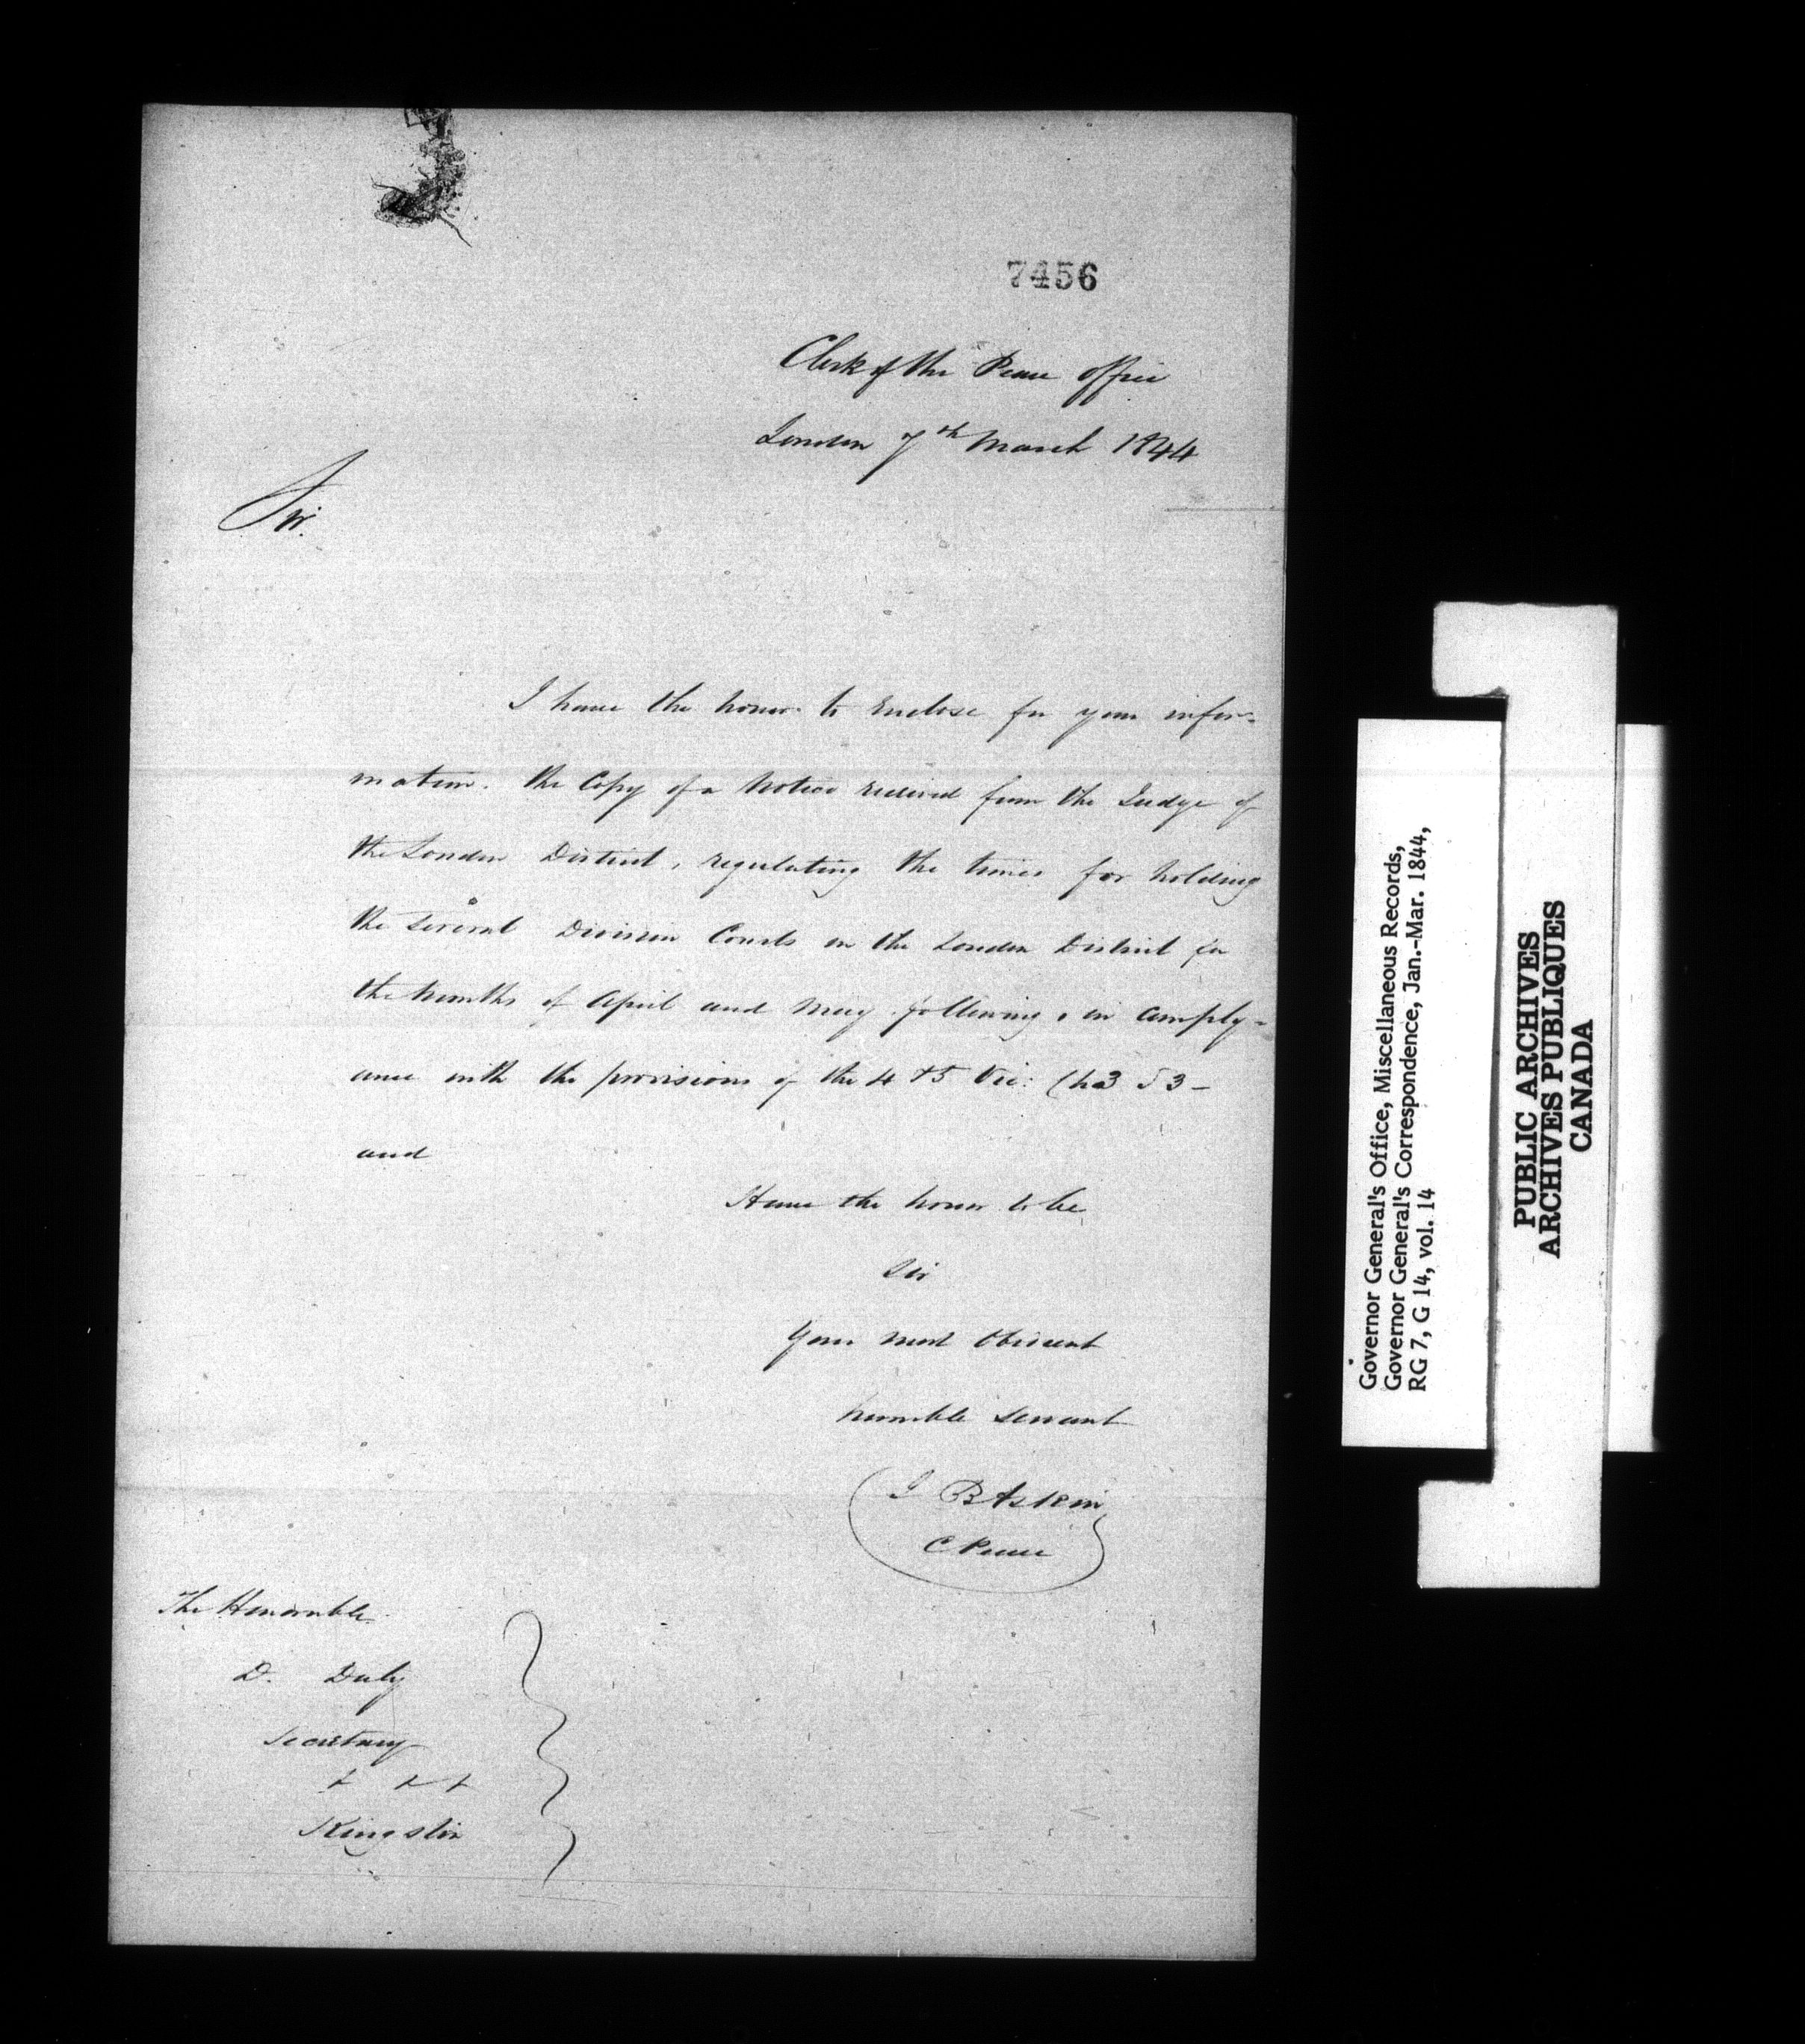 7456
Clerk of the Peace office
London 7th March 1844
Sir.
I have the honor to Enclose for your infor-
mation. the Copy of a Notice received from the Judge of
the London District, regulating the times for holding
the several Division Courts in the London District for
the Months of April and May following, in comply-
ance with the provisions of the 4 & 5 Vic: Cha 3 S 3 -
and
Have the honor to be
Sir
Your most Obedient
humble servant
J B Askin
C Peace
The Honorable
D. Daly
Secretary
Kingston
Governor General's Office, Miscellaneous Records,
Governor General's Correspondence, Jan.-Mar. 1844,
RG 7, G 14, vol. 14
PUBLIC ARCHIVES
ARCHIVES PUBLIQUES
CANADA